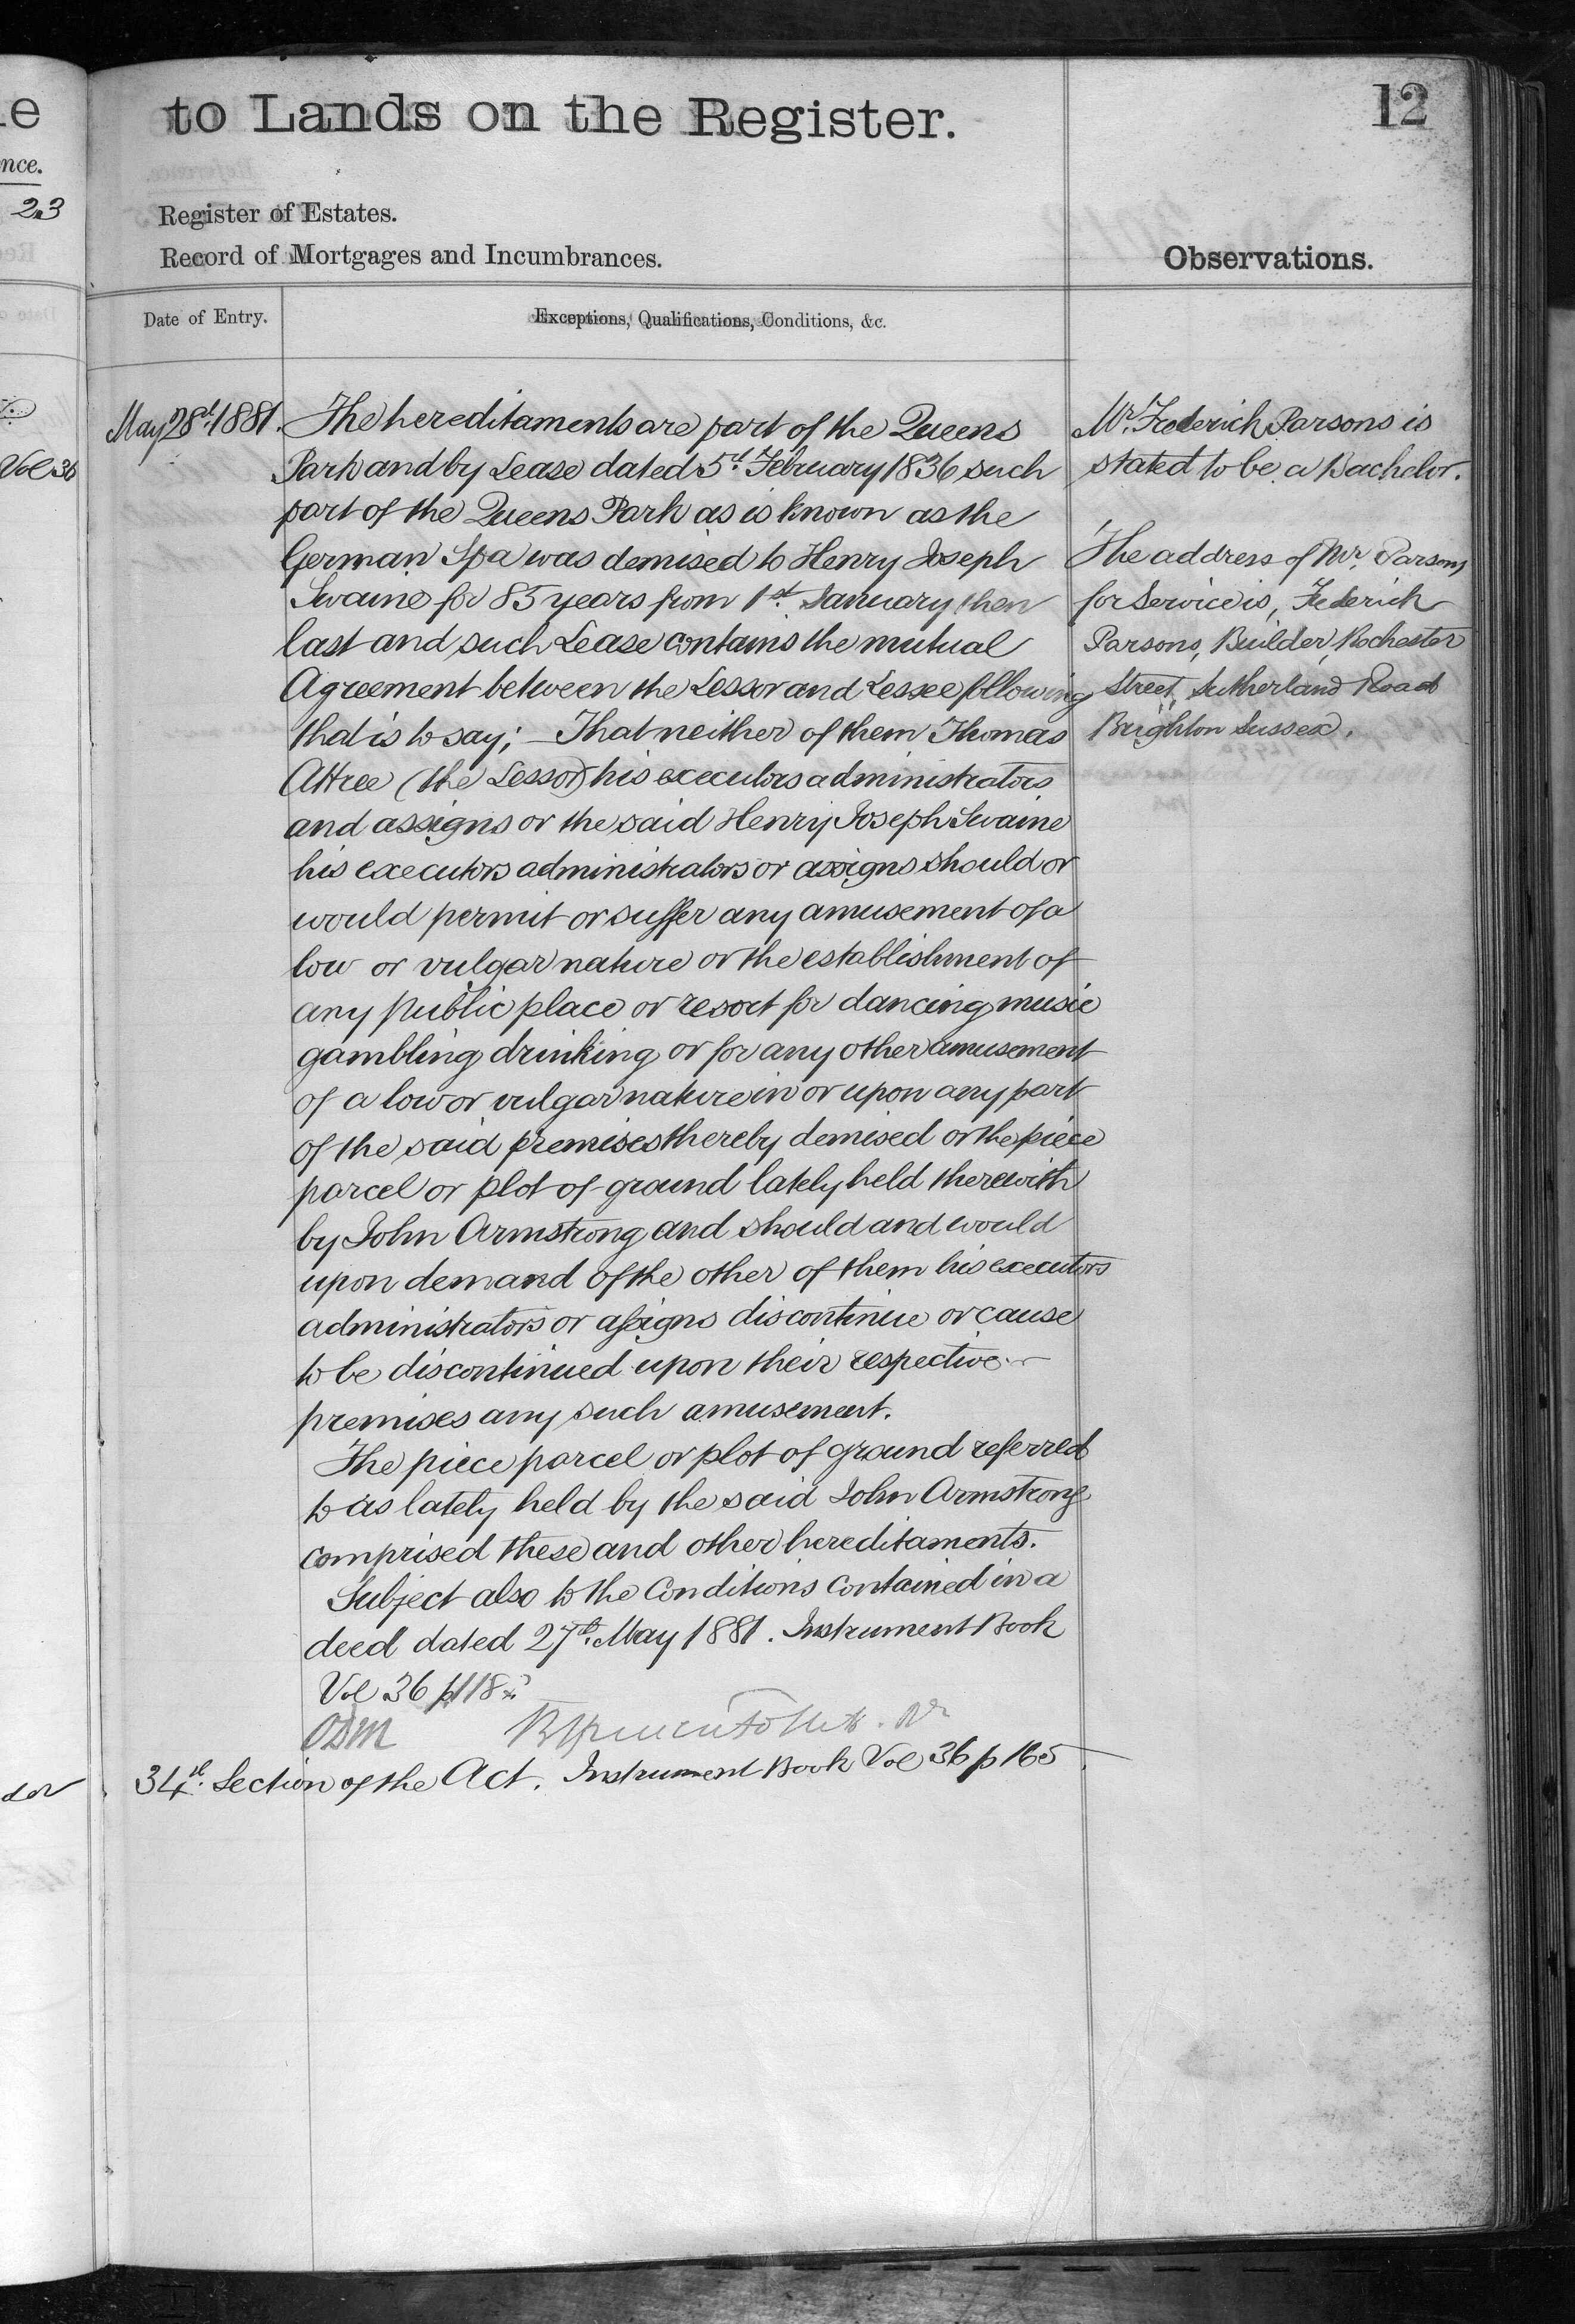 to Lands on the Register.
12
Register of Estates.
Record of Mortgages and Incumbrances.
Observations.
Date of Entry.
Exceptions, Qualifications, Conditions, &c.
May 28th 1881.
The hereditaments are part of the Queens
Park and by Lease dated 5th February 1836 such
part of the Queens Park as is known as the
German Spa was demised to Henry Joseph
Swaine for 85 years from 1st January then
last and such Lease contains the mutual
Agreement between the Lessor and Lessee following
that is to say; – That neither of them Thomas
Attree (the Lessor) his executors administrators
and assigns or the said Henry Joseph Swaine
his executors administrators or assigns should or
would permit or suffer any amusement of a
low or vulgar nature or the establishment of
any public place or resort for dancing music
gambling drinking or for any other amusement
of a low or vulgar nature in or upon any part
of the said premises thereby demised or the piece
parcel or plot of ground lately held therewith
by John Armstrong and should and would
upon demand of the other of them his executors
administrators or assigns discontinue or cause
to be discontinued upon their respective
premises any such amusement.
The piece parcel or plot of ground referred
to as lately held by the said John Armstrong
comprised these and other hereditaments.
Subject also to the Conditions contained in a
deed dated 27th May 1881. Instrument Book
Vol 36 p 118
34th Section of the Act. Instrument Book Vol 36 p 165
Mr. Frederich Parsons is
stated to be a Bachelor.
The address of Mr. Parsons
for Service is, Frederich
Parsons, Builder, Rochester
Street, Sutherland Road
Brighton Sussex.
e
nce.
23
Vol 36